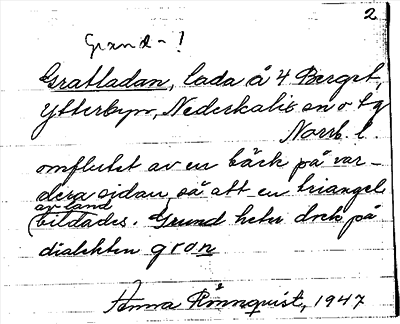 2
Grund-!
Gratladan, lada å 4 Berget,
Ytterbyn, Nederkalix sn o tg
Norrb. l.
omflutet av en bäck på var-
dera sidan, så att en triangel
av land
bildades. Grund heter dock på
dialekten gron
Anna Rönnquist, 1947